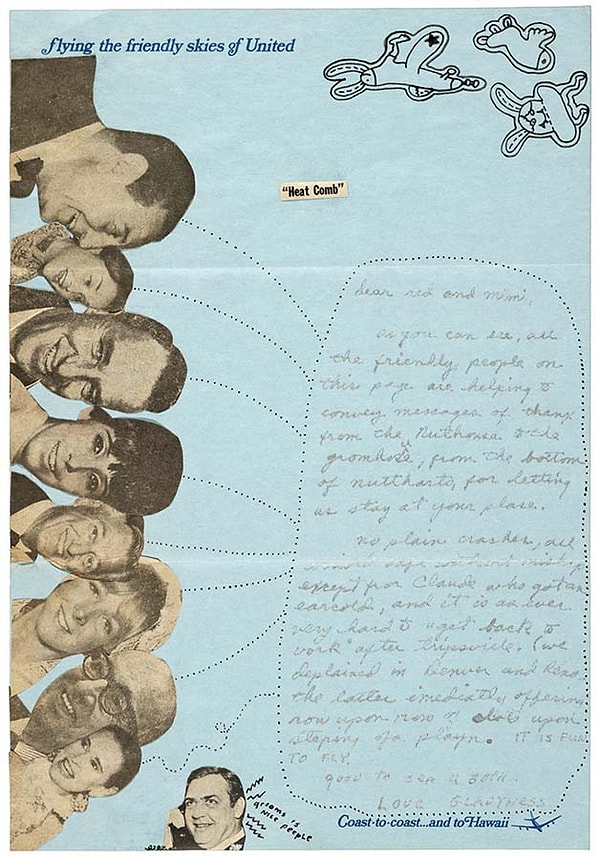 flying the friendly skies of United
"Heat Comb"
dear red and mimi,
as you can see, all
the friendly people on
this page are helping to
convey messages of thanx
from the Nutthouse to the
from the bottom
of nutthartz, for letting
us stay at your plase.
no plain crashes, all
except for Claude who got an
earcold, and it is as ever
very hard to "get back to
work after (we
deplained in Denver and Reno
the latter imediatly offering
row upon row of slots upon
steping of a playn. IT IS FUN
TO FLY.
good to see u both.
LOVE
rooms is
nice people
Coast-to-coast...and to Hawaii